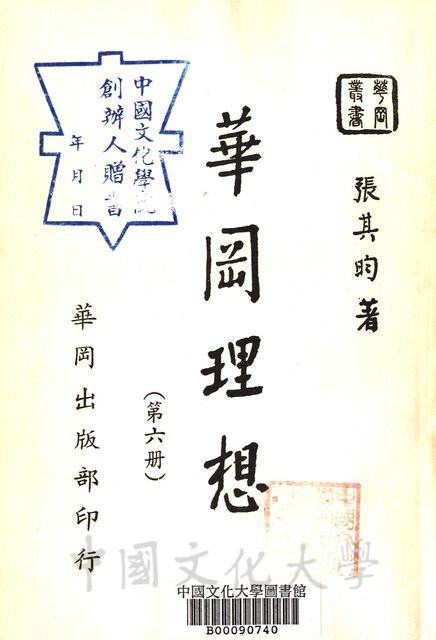 華岡
叢書
張其昀著
華岡理想
(第六册)
華岡出版部印行
中國文化學院
創辦人贈書
年月日
中國
中國文化大學
中國文化大學圖書館
B00090740